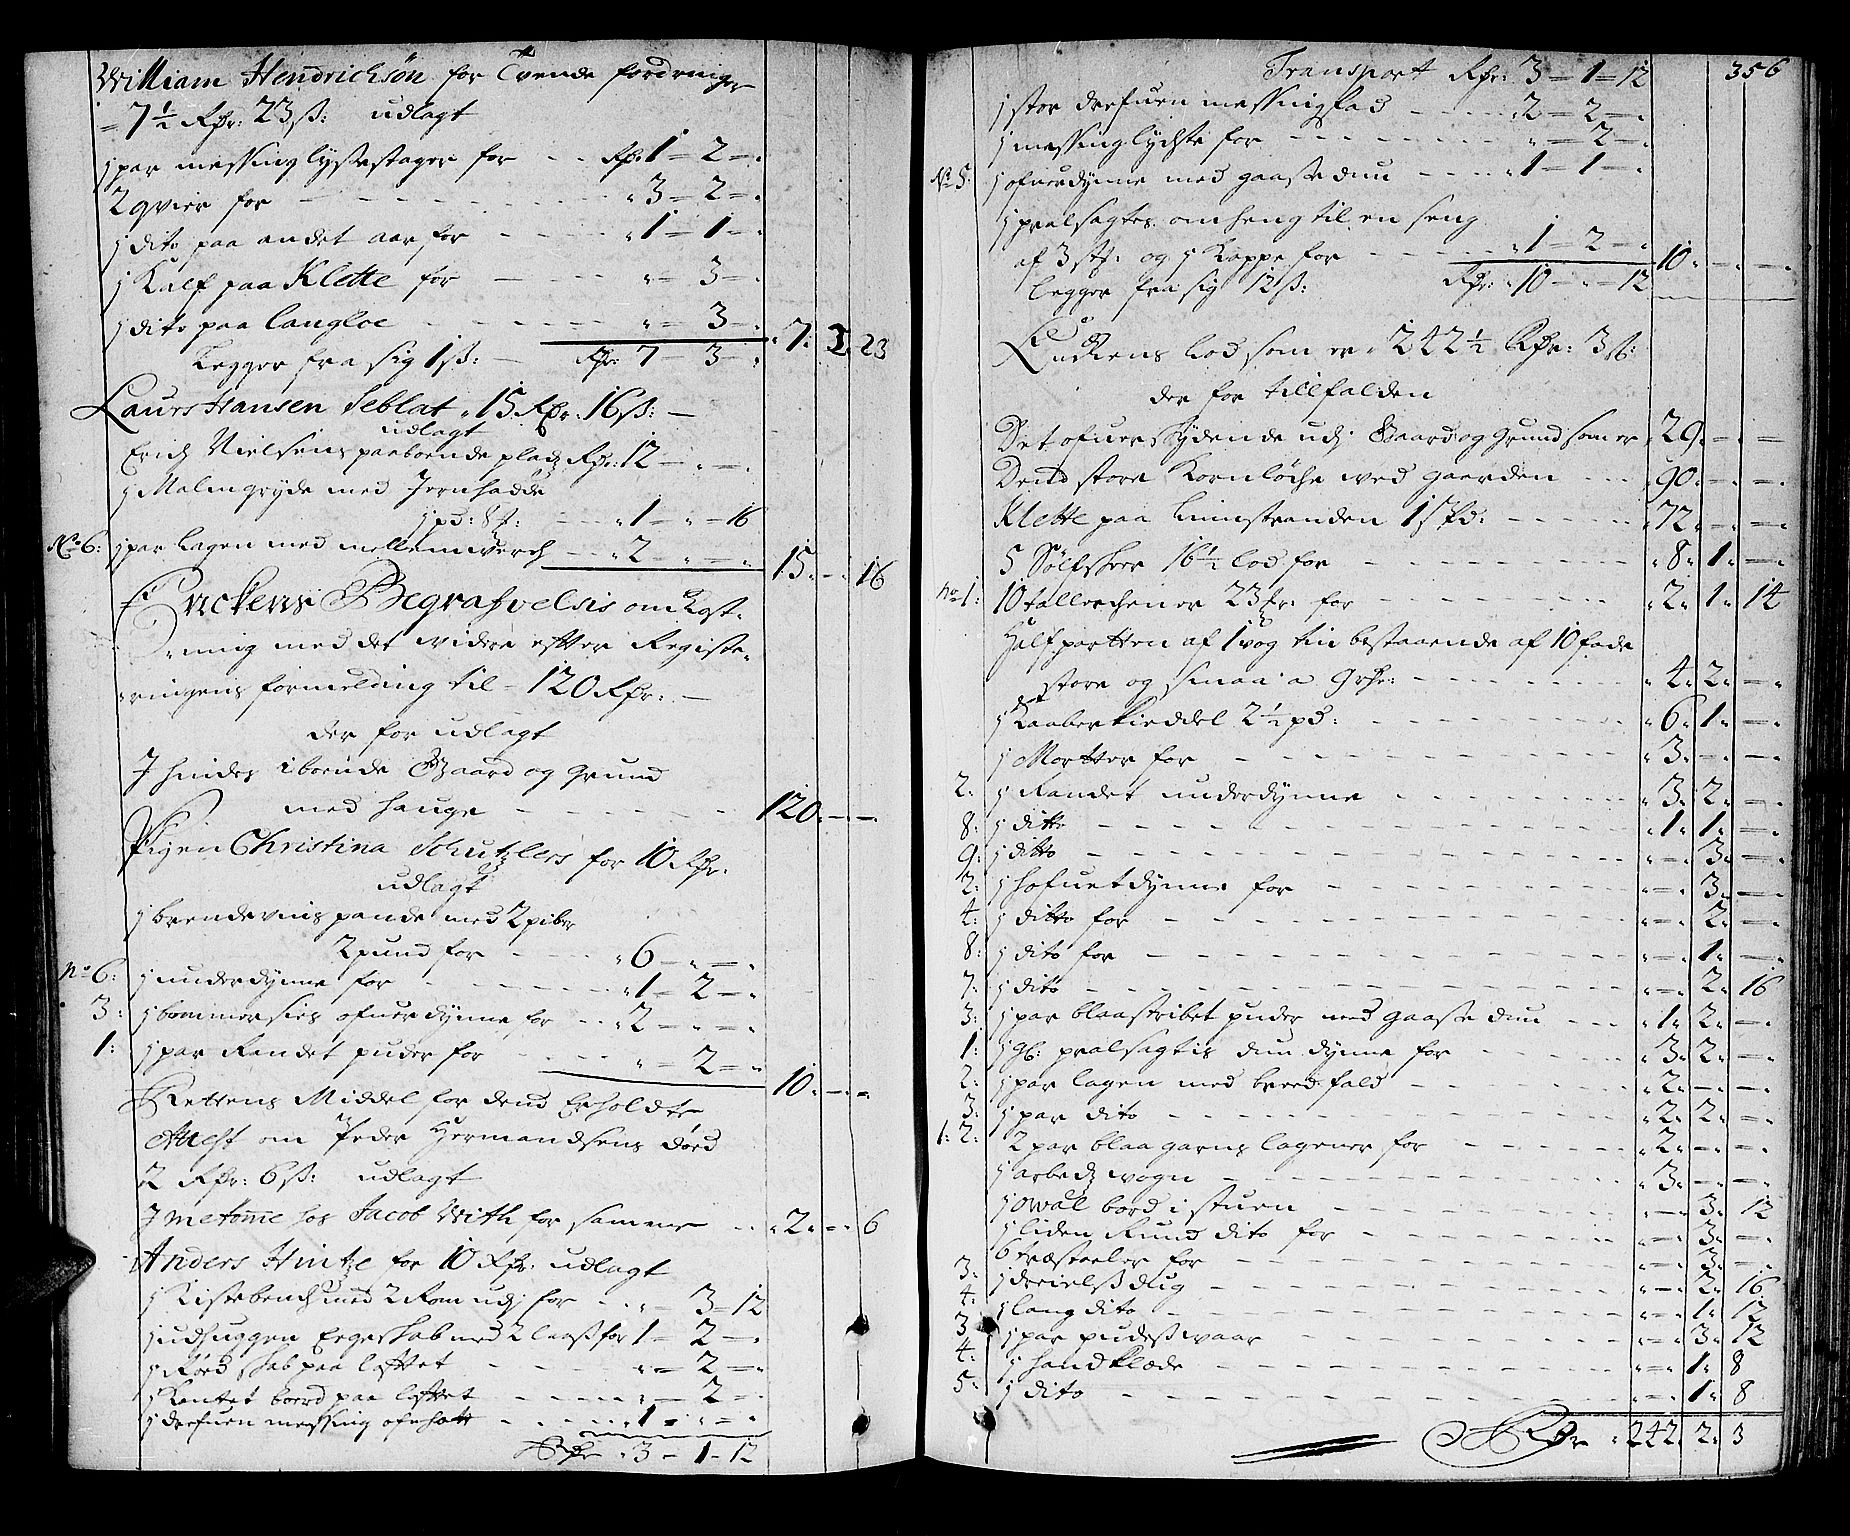 William Hendrichsøn for Tvende fordringer
= 7½ Rdr: 23 ß: udlagt
1 par messing lysestager for - - Rdr: 1 = 2 = "
2 qvier for - - - " 3 = 2 = "
1 dito paa andet aar for - - " 1 = 1 = "
1 Kalf paa Klette for - - " = 3 = "
1 dito paa Langløe - - - " = 3 = " 7: 2 23
Legger fra sig 1 ß: - Rdr: 7 = 3 = "
Laurs Hansen Seblat " 15 Rdr: 16 ß: -
udlagt
Erich Nielsens paaboende pladz Rdr: 12 = " = "
1 Malmgryde med Jernhadde
1 pd: 8 - - " 1 = " = 16
No 6: 1 par lagen med mellemverch - - " 2 = " = " 15: - 16
Enckens Begrafvelsis omkost-
ning med det widere effter Registe-
ringens formelding til - 120 Rdr: -
der for udlagt
J hindes iboende Gaard og grund
med hauge - - - 120: - -
Pigen Christina Schutzlers for 10 Rdr:
udlagt
1 brendevins pande med 2 piber
2 pund for - - " 6 = " = "
No 6: 1 underdynne for - - - " 1 = 2 = "
3: 1 bommersies ofuerdynne for - - " 2 = " = "
1: 1 par Randet puder for - - " = 2 = " 10: - -
Rettens Middel for dend Erholdte
Attest om Peder Hermandsens død
2 Rdr: 6 ß: udlagt
J metønne hos Jacob With for samme - - " 2: - 6
Anders Hintze for 10 Rdr: udlagt
1 Kistebench med 2 Rom udj for - - " = 3 = 12
1 udhuggen Egeskab med 2 laass for 1 = 2 = "
1 Rød skab paa lofttet - - - " = 2 = "
1 Kantet bord paa lofttet - - - " = 2 = "
1 drefuen messing - - " 1 = " = "
Rdr " 3 = 1 = 12
Transport Rdr: 3 = 1 = 12 356
1 stor drefuen messingfad - - - " 2 = 2 = "
1 messing lychte for - - - " = 2 = "
No 5: 1 ofuerdynne med gaasse duun - - - " 1 = 1 = "
1 omheng til en seng
af 3 st: og 1 Kappe for - - - " 1 = 2 = " 10: - -
legger fra sig 12 ß: Rdr: " 10 = " = 12
Enckens Lod som er " 242½ Rdr: 3 ß:
der for tillfalden
Det ofuerskydende udj Gaard og grund som er " 29: - -
Dend store Kornløche ved gaarden - - - " 90: - -
Klette paa Limstranden 1 - - - " 72: - -
5 Sølfskeer 16½ lod for - - - " 8: 1: -
No 1: 10 tallerchener 23 for - - - " 2: 1: 14
Halfpartten af 1 vog tin bestaaende af 10 fade
store og smaa a 9 Rdr: - - - " 4: 2: -
1 Kaaberkieddel 2½ pd: - - - " 6: 1: -
1 Mortter for - - - " 3: - -
2: 1 Randet underdynne - - - " 3: 2: -
8: 1 ditto - - - " 1: 1: -
9: 1 ditto - - - " - 3: -
2: 1 hofuetdynne for - - - " - 3: -
4: 1 ditto for - - - " - 2: -
8: 1 dito for - - - " - 1: -
7: 1 dito - - - " - 2: 16
3: 1 par blaastribet puder med gaasse duun - - - " 1: 2: -
1: 1 gl: dun dynne for - - - " 3: 2: -
2: 1 par lagen med breed fald - - - " 2: - -
3: 1 par dito - - - " 2: 2: -
1: 2: 2 par blaagarns lagener for - - - " 2: - -
1 arbedz vogn - - - " 3: - -
1 owal bord i stuen - - - " - 3: 12
1 liden Rund dito for - - - " - 3: -
6 træstoeler for - - - " - 3: -
3: 1 dreielß dug - - - " - 2: 16
4: 1 lang dito - - - " - 1: 12
3: 1 par pudeßwaar - - - " - 3: 12
4: 1 handklæde - - - " - 1: 8
5: 1 dito - - - " - 1: 8
Rdr " 242: 2: 3